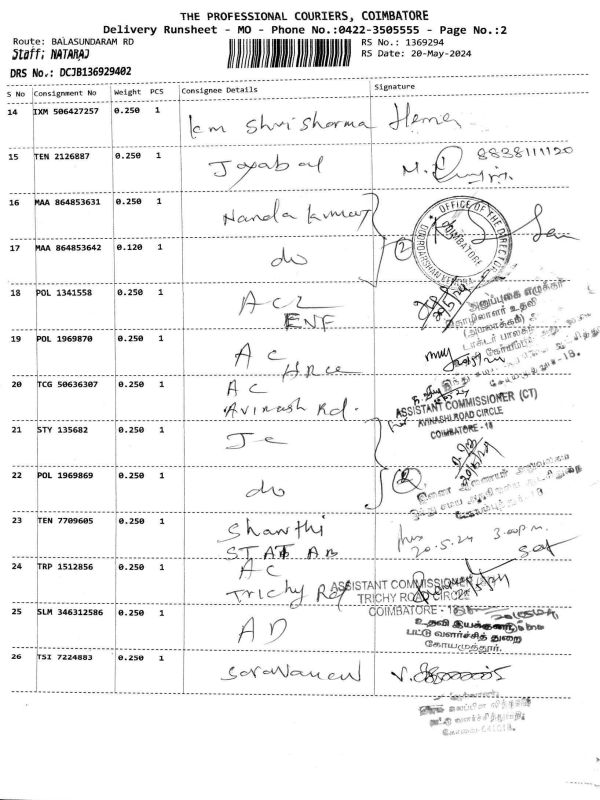 THE PROFESSIONAL COURIERS, COIMBATORE
Delivery Runsheet - MO - Phone No.:0422-3505555 - Page No.:2
Route: BALASUNDARAM RD
RS No.: 1369294
Staff; NATARAJ
RS Date: 20-May-2024
DRS No.: DCJB136929402
S No Consignment No Weight PCS Consignee Details Signature
14 IXM 506427257 0.250 1 km Shri Sharma Hema
15 TEN 2126887 0.250 1 Jayabal 8838111120
16 MAA 864853631 0.250 1 Nanda kumar
OFFICE OF THE DIRECTOR
COIMBATORE
17 MAA 864853642 0.120 1 do 2
18 POL 1341558 0.250 1 AC2
ENF
அனுப்புகை எழுத்தர்
19 POL 1969870 0.250 1 AC
HRCE
20 TCG 50636307 0.250 1 AC
Avinash Rd.
ASSISTANT COMMISSIONER (CT)
AVINASHI ROAD CIRCLE
COIMBATORE - 18
21 STY 135682 0.250 1 Jc
22 POL 1969869 0.250 1 do 2
23 TEN 7709605 0.250 1 Shanthi
20.5.24 3.00pm.
24 TRP 1512856 0.250 1 AC
Trichy Rd
ASSISTANT COMMISSIONER
TRICHY ROAD CIRCLE
COIMBATORE - 18
25 SLM 346312586 0.250 1 AD
உதவி இயக்குனர்
பட்டு வளர்ச்சித் துறை
கோயமுத்தூர்.
26 TSI 7224883 0.250 1 Saravanan